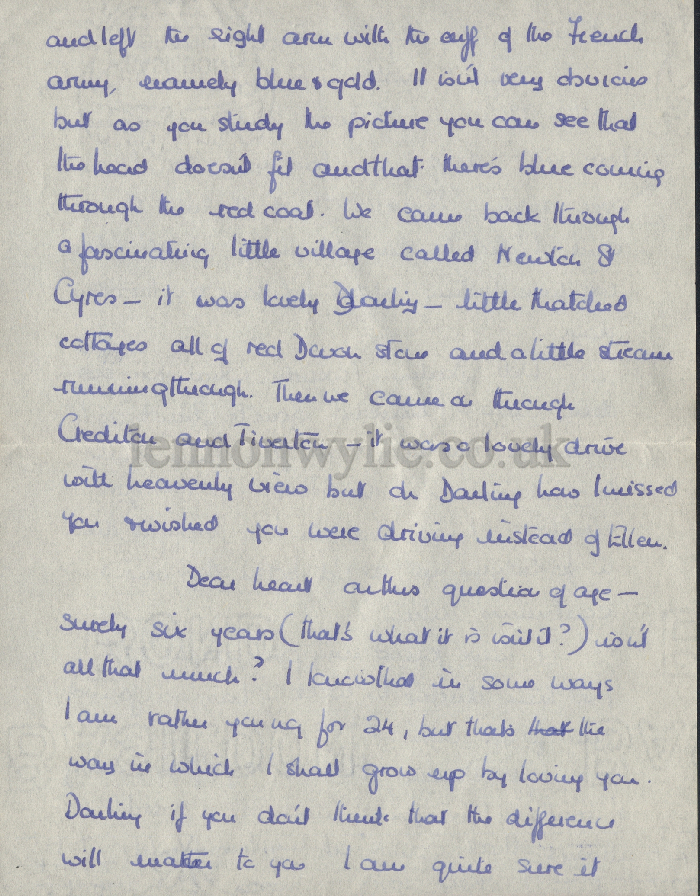 and left the right arm with the cuff of the French
army, namely blue & gold. It isn't very obvious
but as you study the picture you can see that
the head doesn't fit and that there's blue coming
through the red coat. We came back through
a fascinating little village called Newton St
Cyres – it was lovely Darling – little thatched
cottages all of red Devon stone and a little stream
running through. Then we came on through
Crediton and Tiverton – it was a lovely drive
lennonwylie.co.uk
with heavenly view but oh Darling how I missed
you & wished you were driving instead of Ellen.
Dear heart on this question of age –
surely six years (that's what it is isn't it?) isn't
all that much? I know that in some ways
I am rather young for 24, but thats that the
way in which I shall grow up by loving you.
Darling if you don't think that the difference
will matter to you I am quite sure it